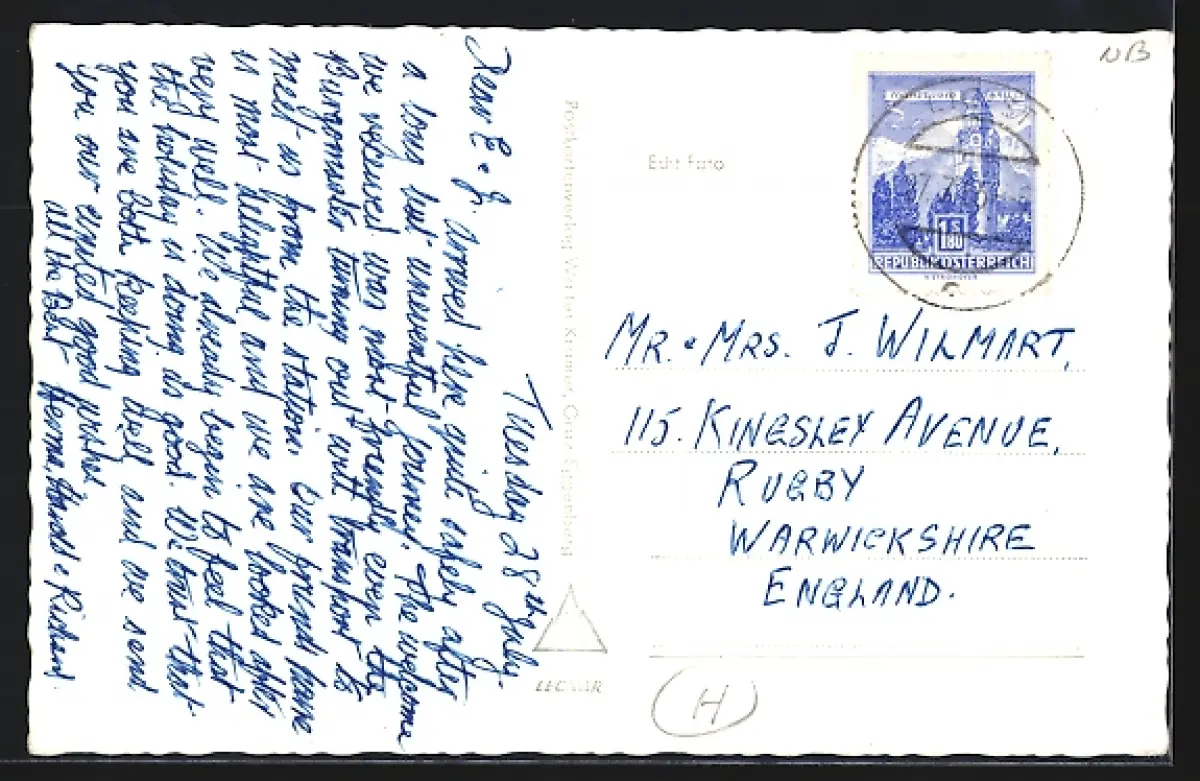 Tuesday 28th July.
Dear E & J. Arrived here quite safely after
a long but uneventful journey. The welcome
we received was most friendly even the
Burgomaster turning out with transport to
meet us from the station. Our
is most delightful and we are looked after
very well. We already begin to feel that
this holiday is doing us good. We trust that
you are both keeping well and we send
you our united good wishes.
All the Best & Richard.
Postkartenverlag
Echt Foto
NB
1 S
1.80
REPUBLIK ÖSTERREICH
MR. & MRS. J. WILMART,
115. KINGSLEY AVENUE,
RUGBY
WARWICKSHIRE
ENGLAND.
H